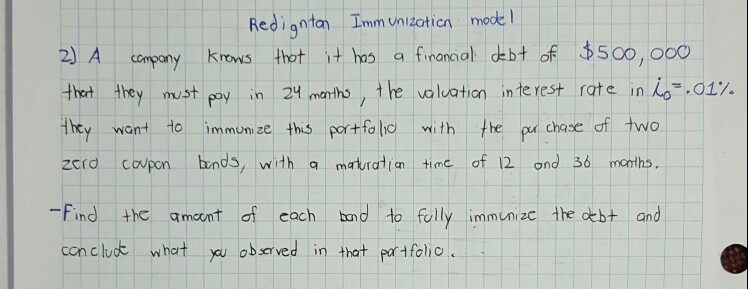 Redignton Immunization model
2) A company knows that it has a financial debt of $500,000
that they must pay in 24 months, the valuation interest rate in i₀=.01%.
they want to immunize this portfolio with the purchase of two
zero coupon bonds, with a maturation time of 12 and 36 months.
-Find the amount of each bond to fully immunize the debt and
conclude what you observed in that portfolio.